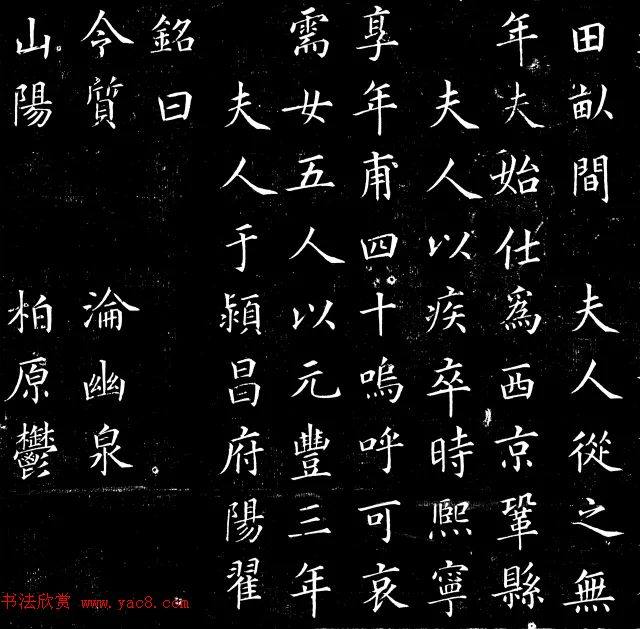 田畝間 夫人從之無
年夫始仕為西京鞏縣
夫人以疾卒時熙寧
享年甫四十嗚呼可哀
需女五人以元豐三年
夫人于潁昌府陽翟
銘曰
令質 淪幽泉
山陽 柏原鬱
书法欣赏 www.yac8.com